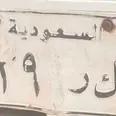 السعودية
ك ر ٦٩